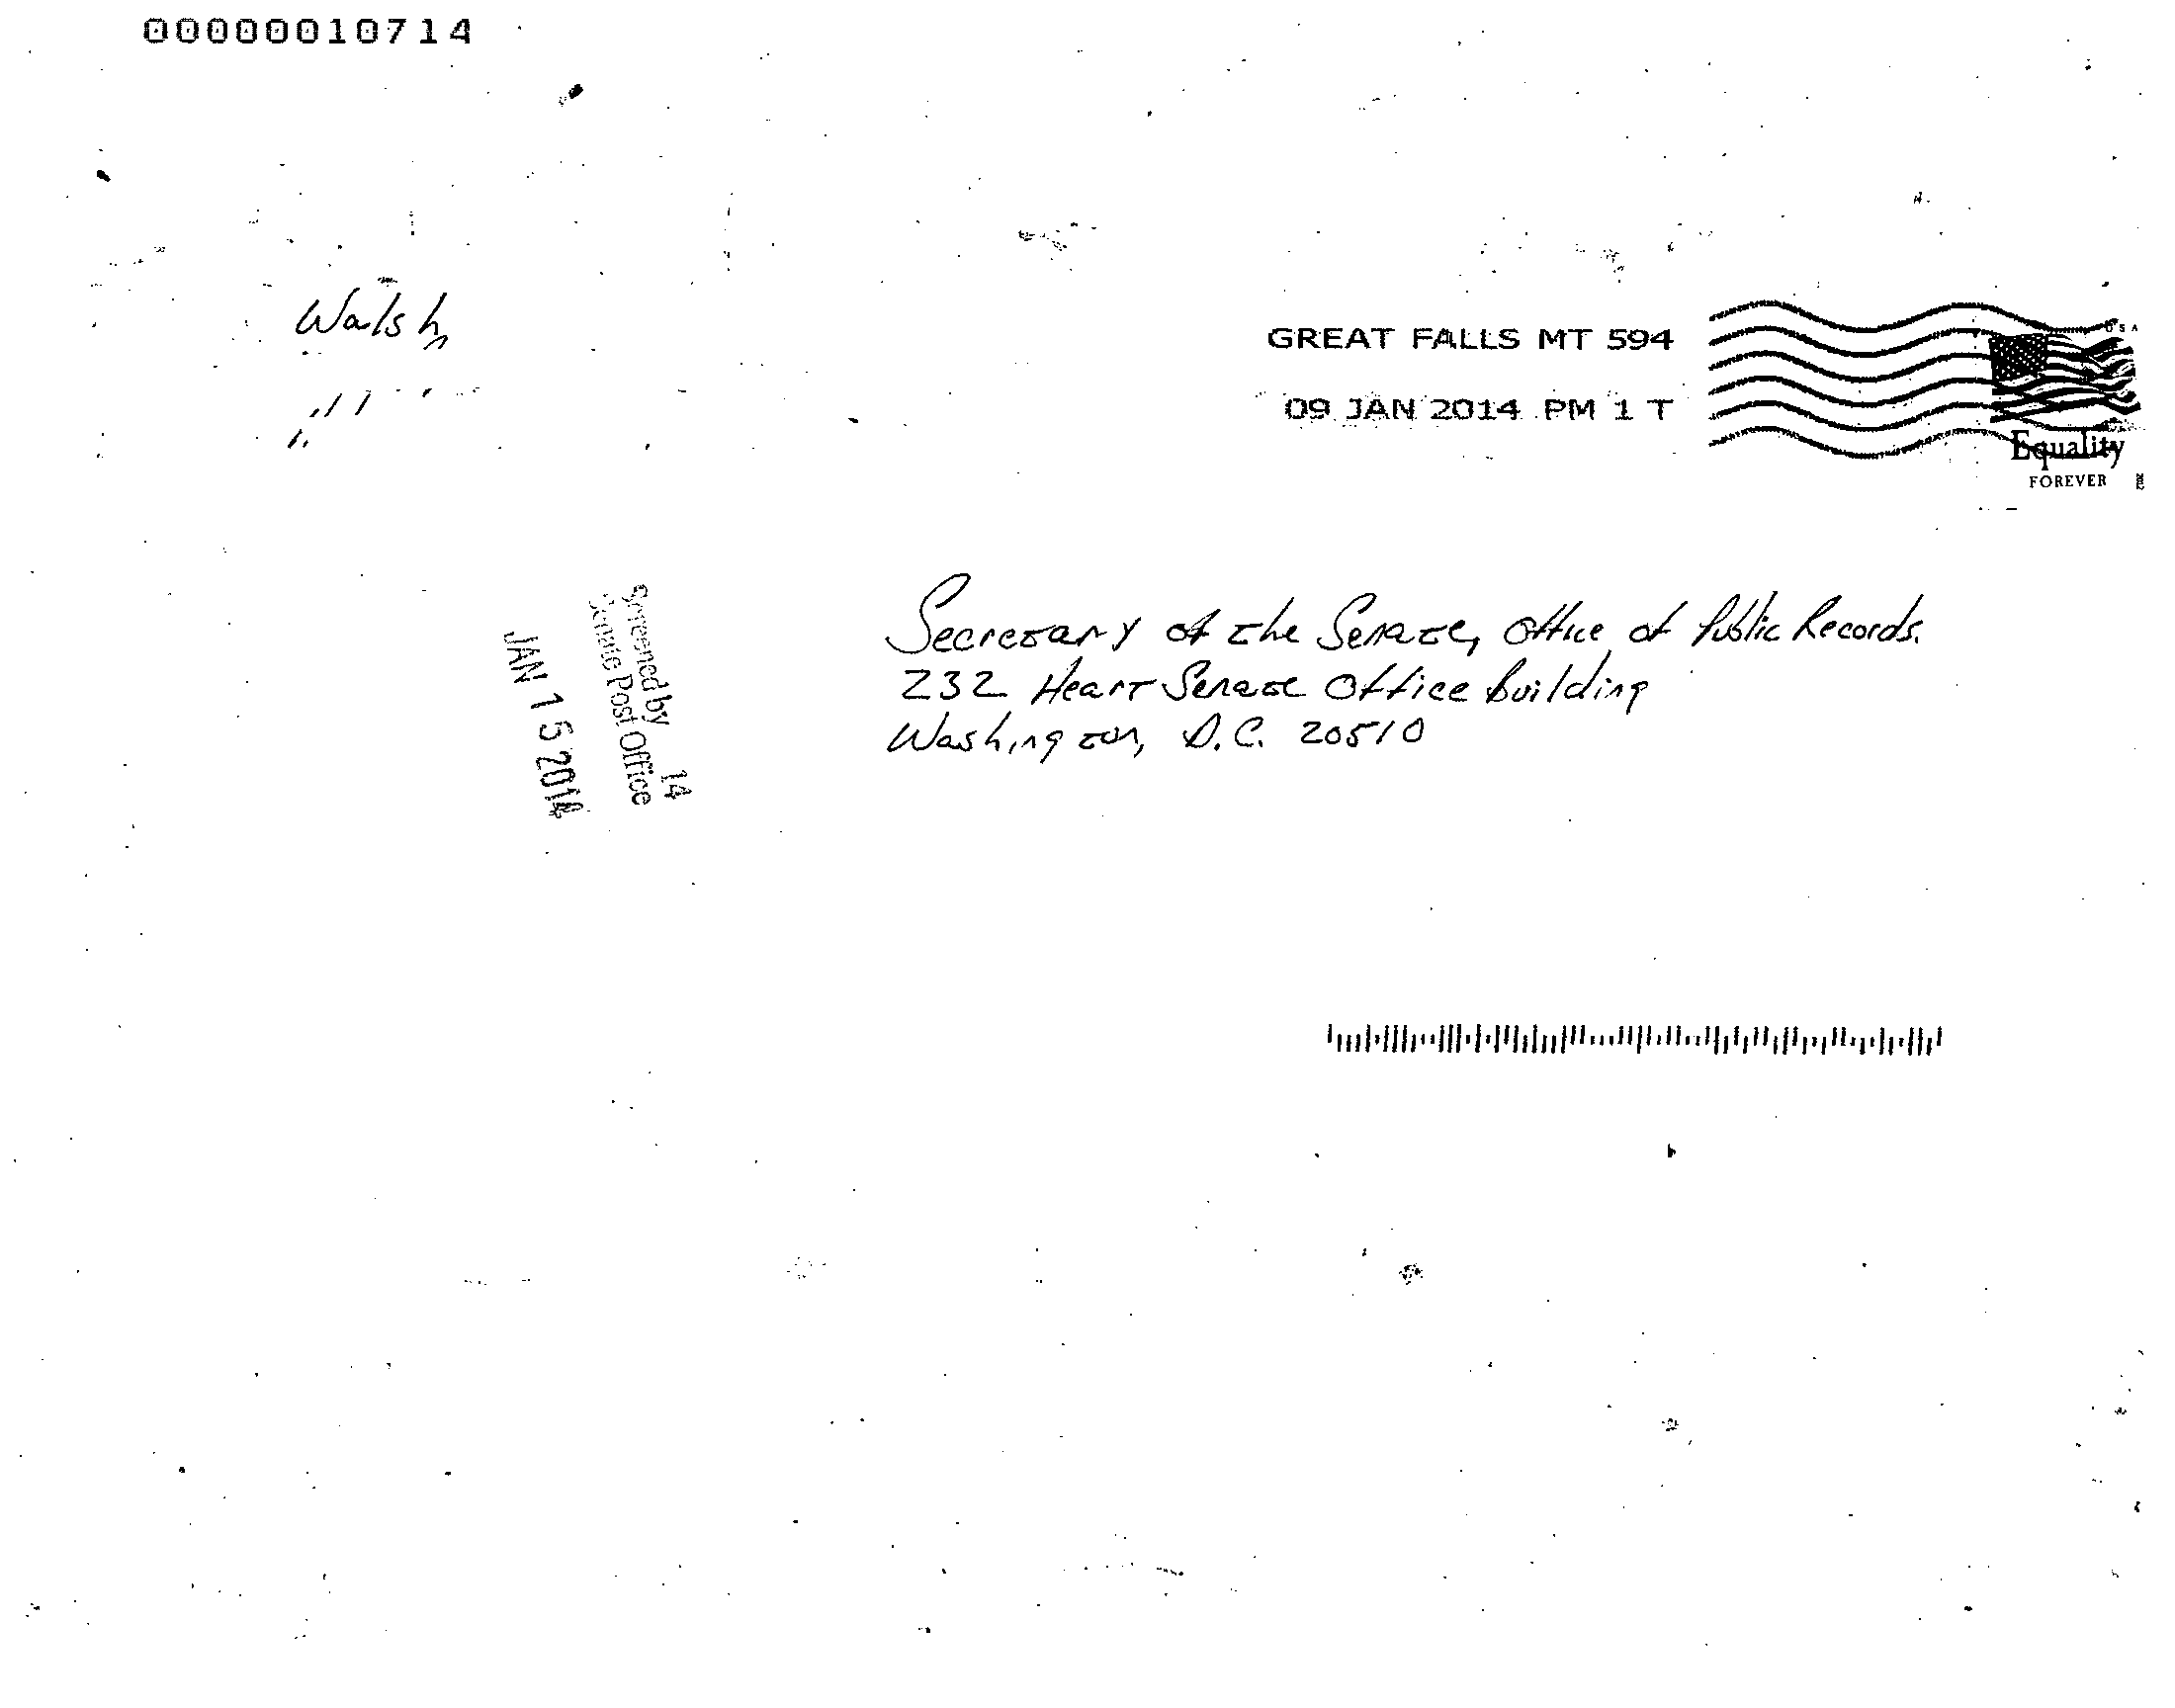 00000010714
Walsh
GREAT FALLS MT 594
09 JAN 2014 PM 1 T
USA
Equality
FOREVER
Screened by 14
Senate Post Office
JAN 15 2014
Secretary of the Senate, Office of Public Records.
232 Heart Senate Office Building
Washington, D.C. 20510